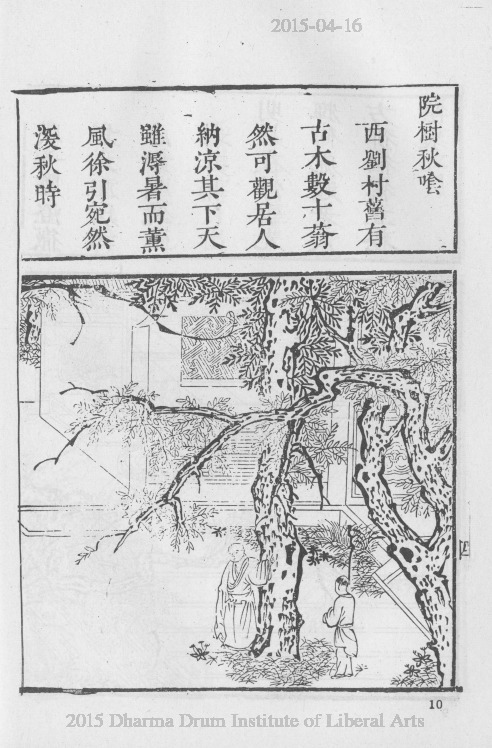 2015-04-16
院樹秋
西劉村舊有
古木數十蓊
然可觀居人
納涼其下天
雖溽暑而薰
風徐引宛然
秋時
四
10
2015 Dharma Drum Institute of Liberal Arts